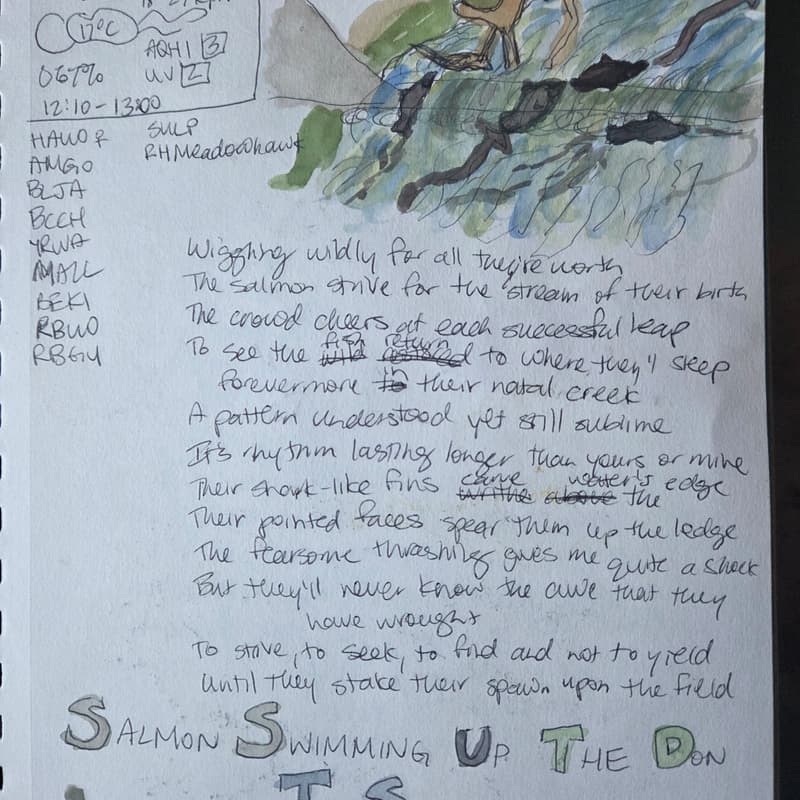 17°C
AQHI 3
067%
UV 2
12:10 - 13:00
HAWO R
SULP
AMGO
RHMeadowhawk
BLJA
BCCH
YRWA
MALL
BEKI
RBWO
RBGU
Wiggling wildly for all they're worth
The salmon strive for the stream of their birth
The crowd cheers at each successful leap
To see the fish return to where they'll sleep
forevermore in their natal creek
A pattern understood yet still sublime
It's rhythm lasting longer than yours or mine
Their shark-like fins carve the water's edge
Their pointed faces spear them up the ledge
The fearsome thrashing gives me quite a shock
But they'll never know the awe that they
have wrought
To strive, to seek, to find and not to yield
Until they stake their spawn upon the field
SALMON SWIMMING UP THE DON